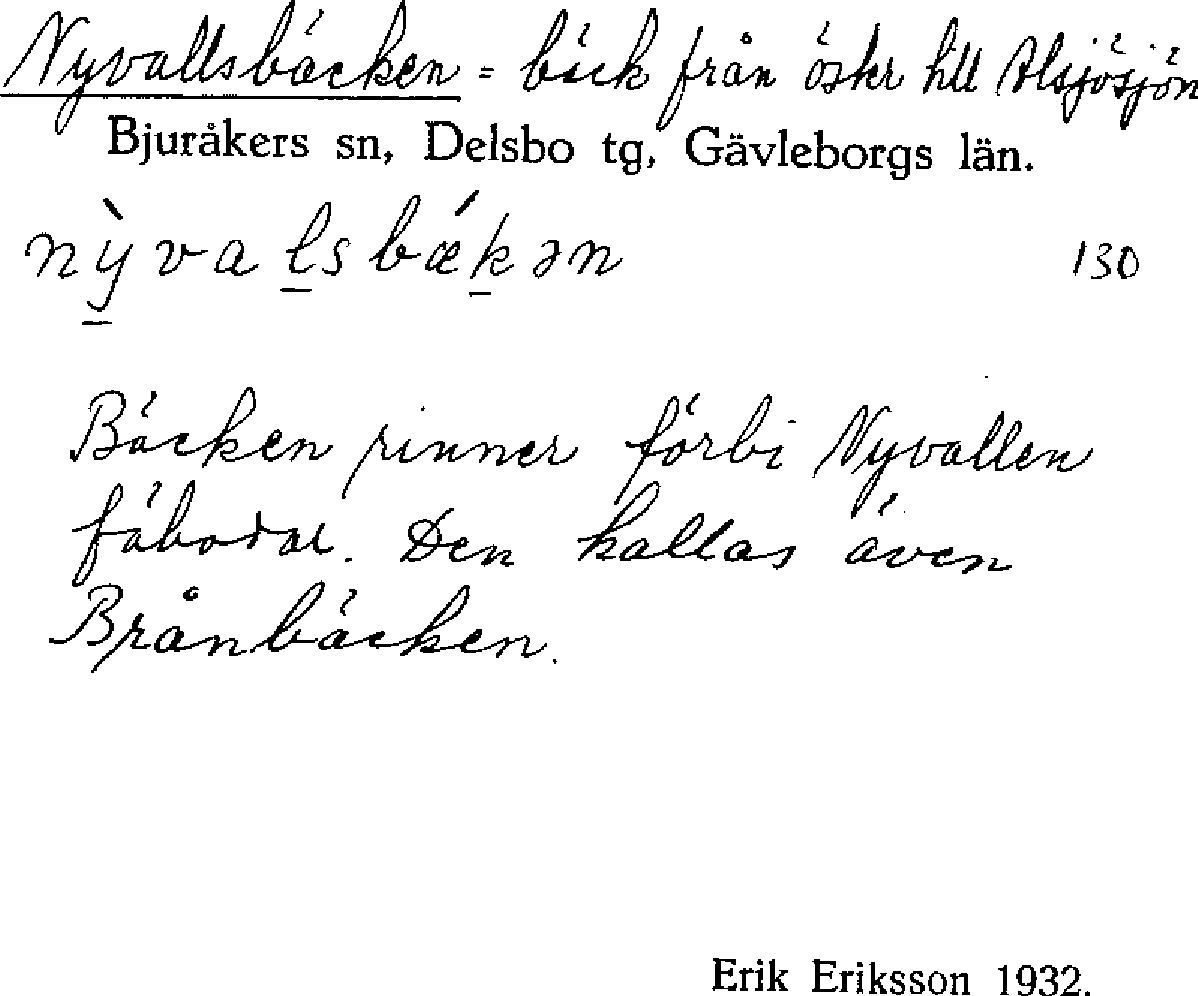 Nyvallsbäcken = bäck från öster till Alsjösjön
Bjuråkers sn, Delsbo tg, Gävleborgs län.
nỳvalsbǽkən 130
Bäcken rinner förbi Nyvallen
fäbodar. Den kallas även
Brånbäcken.
Erik Eriksson 1932.